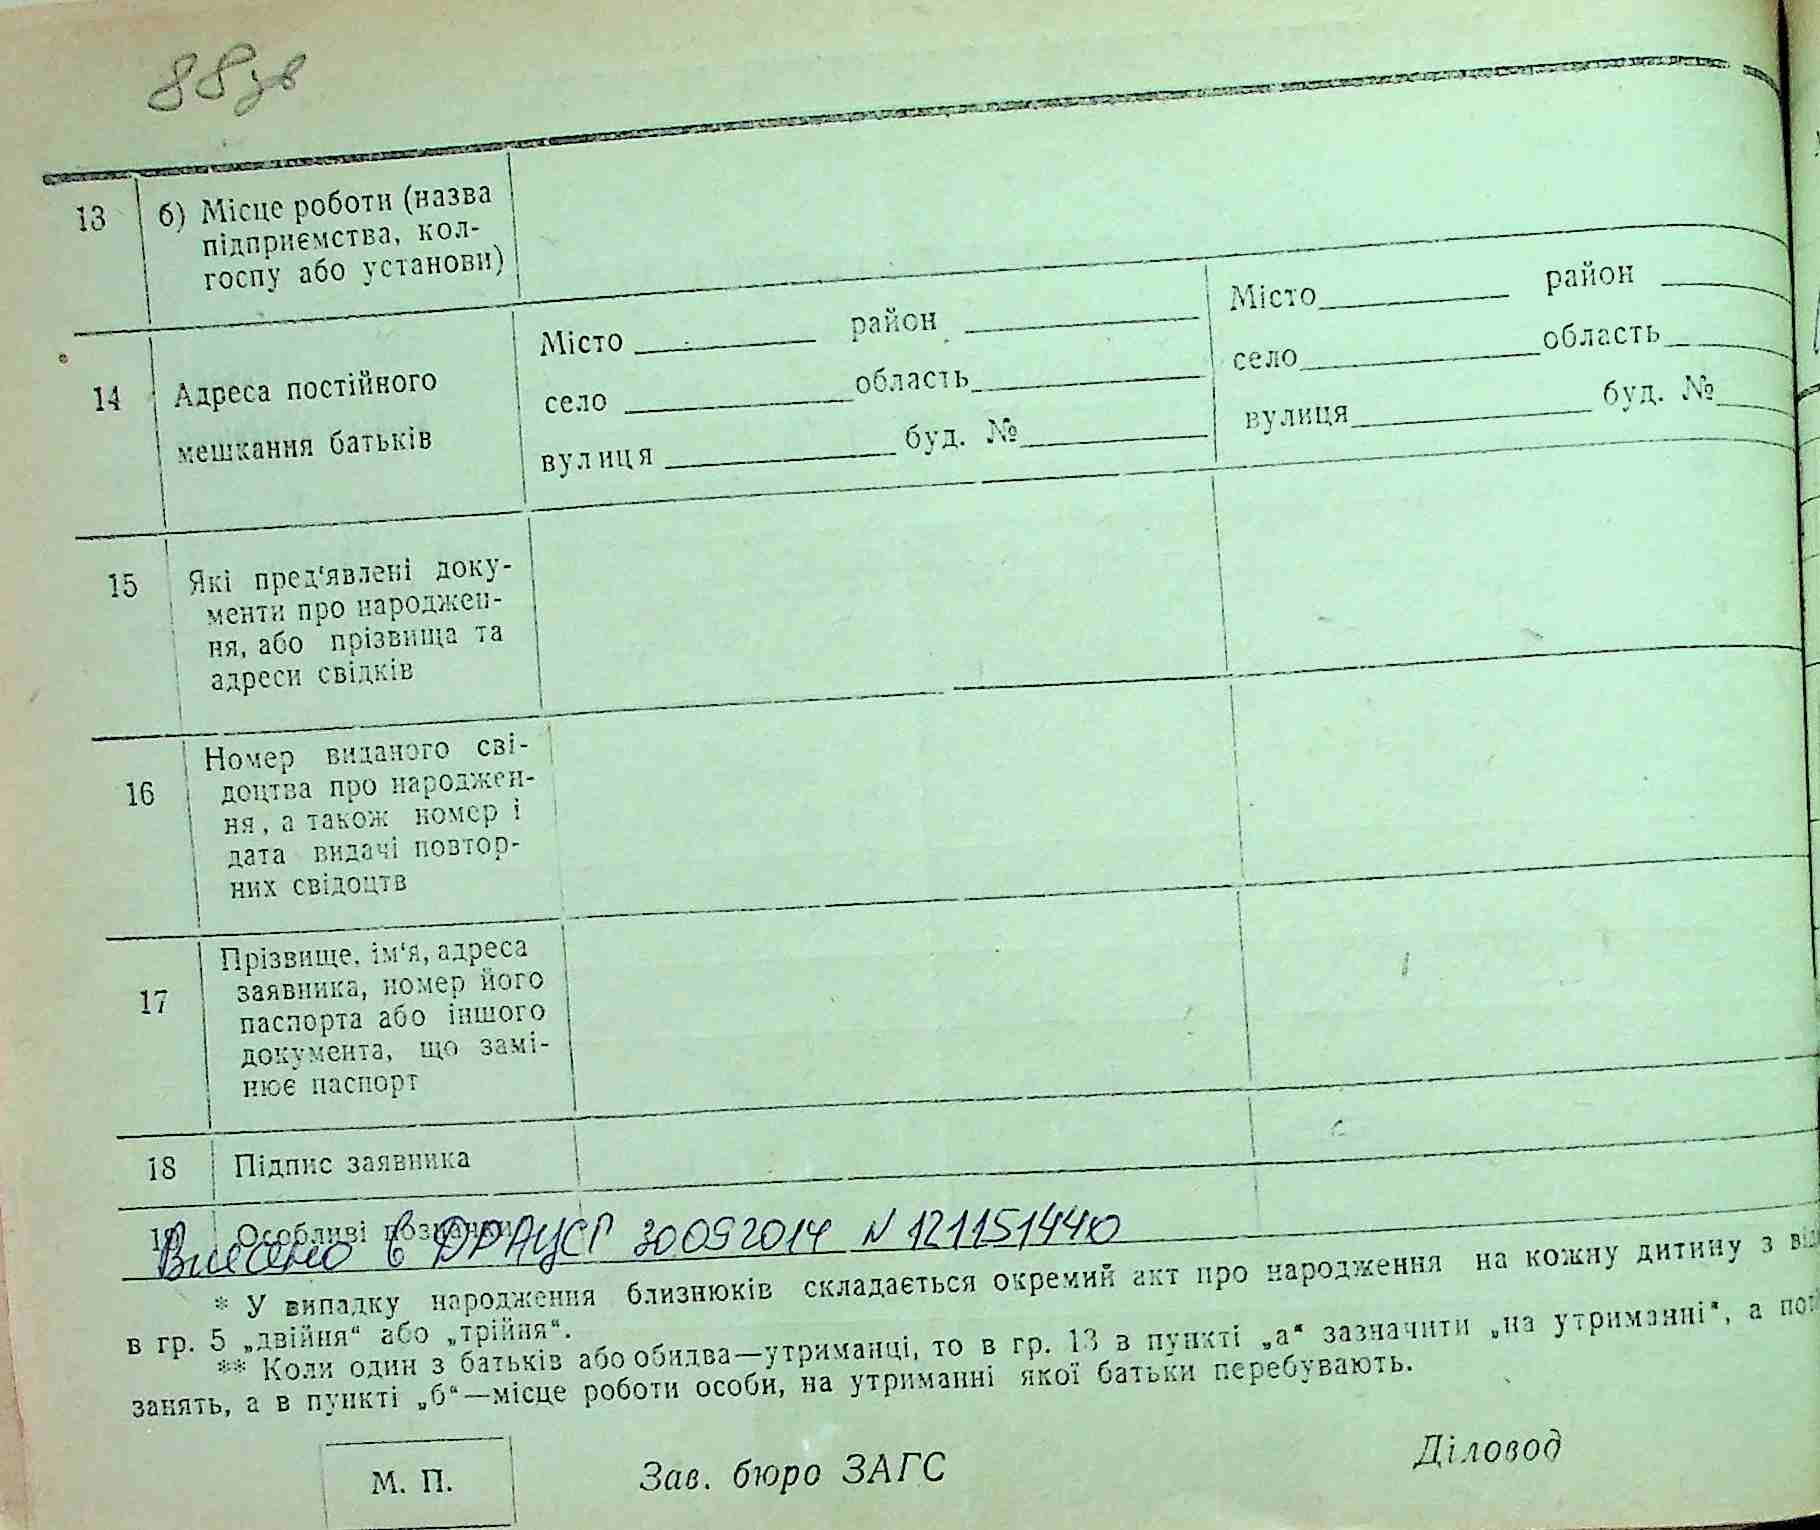 88зв
13 б) Місце роботи (назва
підприємства, кол-
госпу або установи)
14 Адреса постійного
мешкання батьків
Місто район
село область
вулиця буд. №
Місто район
село область
вулиця буд. №
15 Які пред‘явлені доку-
менти про народжен-
ня, або прізвища та
адреси свідків
16 Номер виданого сві-
доцтва про народжен-
ня, а також номер і
дата видачі повтор-
них свідоцтв
17 Прізвище, ім‘я, адреса
заявника, номер його
паспорта або іншого
документа, що замі-
нює паспорт
18 Підпис заявника
19 Особливі позначки
Внесено в ДРАЦСГ 30092014 N 121151440
* У випадку народження близнюків складається окремий акт про народження на кожну дитину з
в гр. 5 „двійня“ або „трійня“.
** Коли один з батьків або обидва—утриманці, то в гр. 13 в пункті „а“ зазначити „на утриманні“, а
занять, а в пункті „б“—місце роботи особи, на утриманні якої батьки перебувають.
М. П. Зав. бюро ЗАГС Діловод